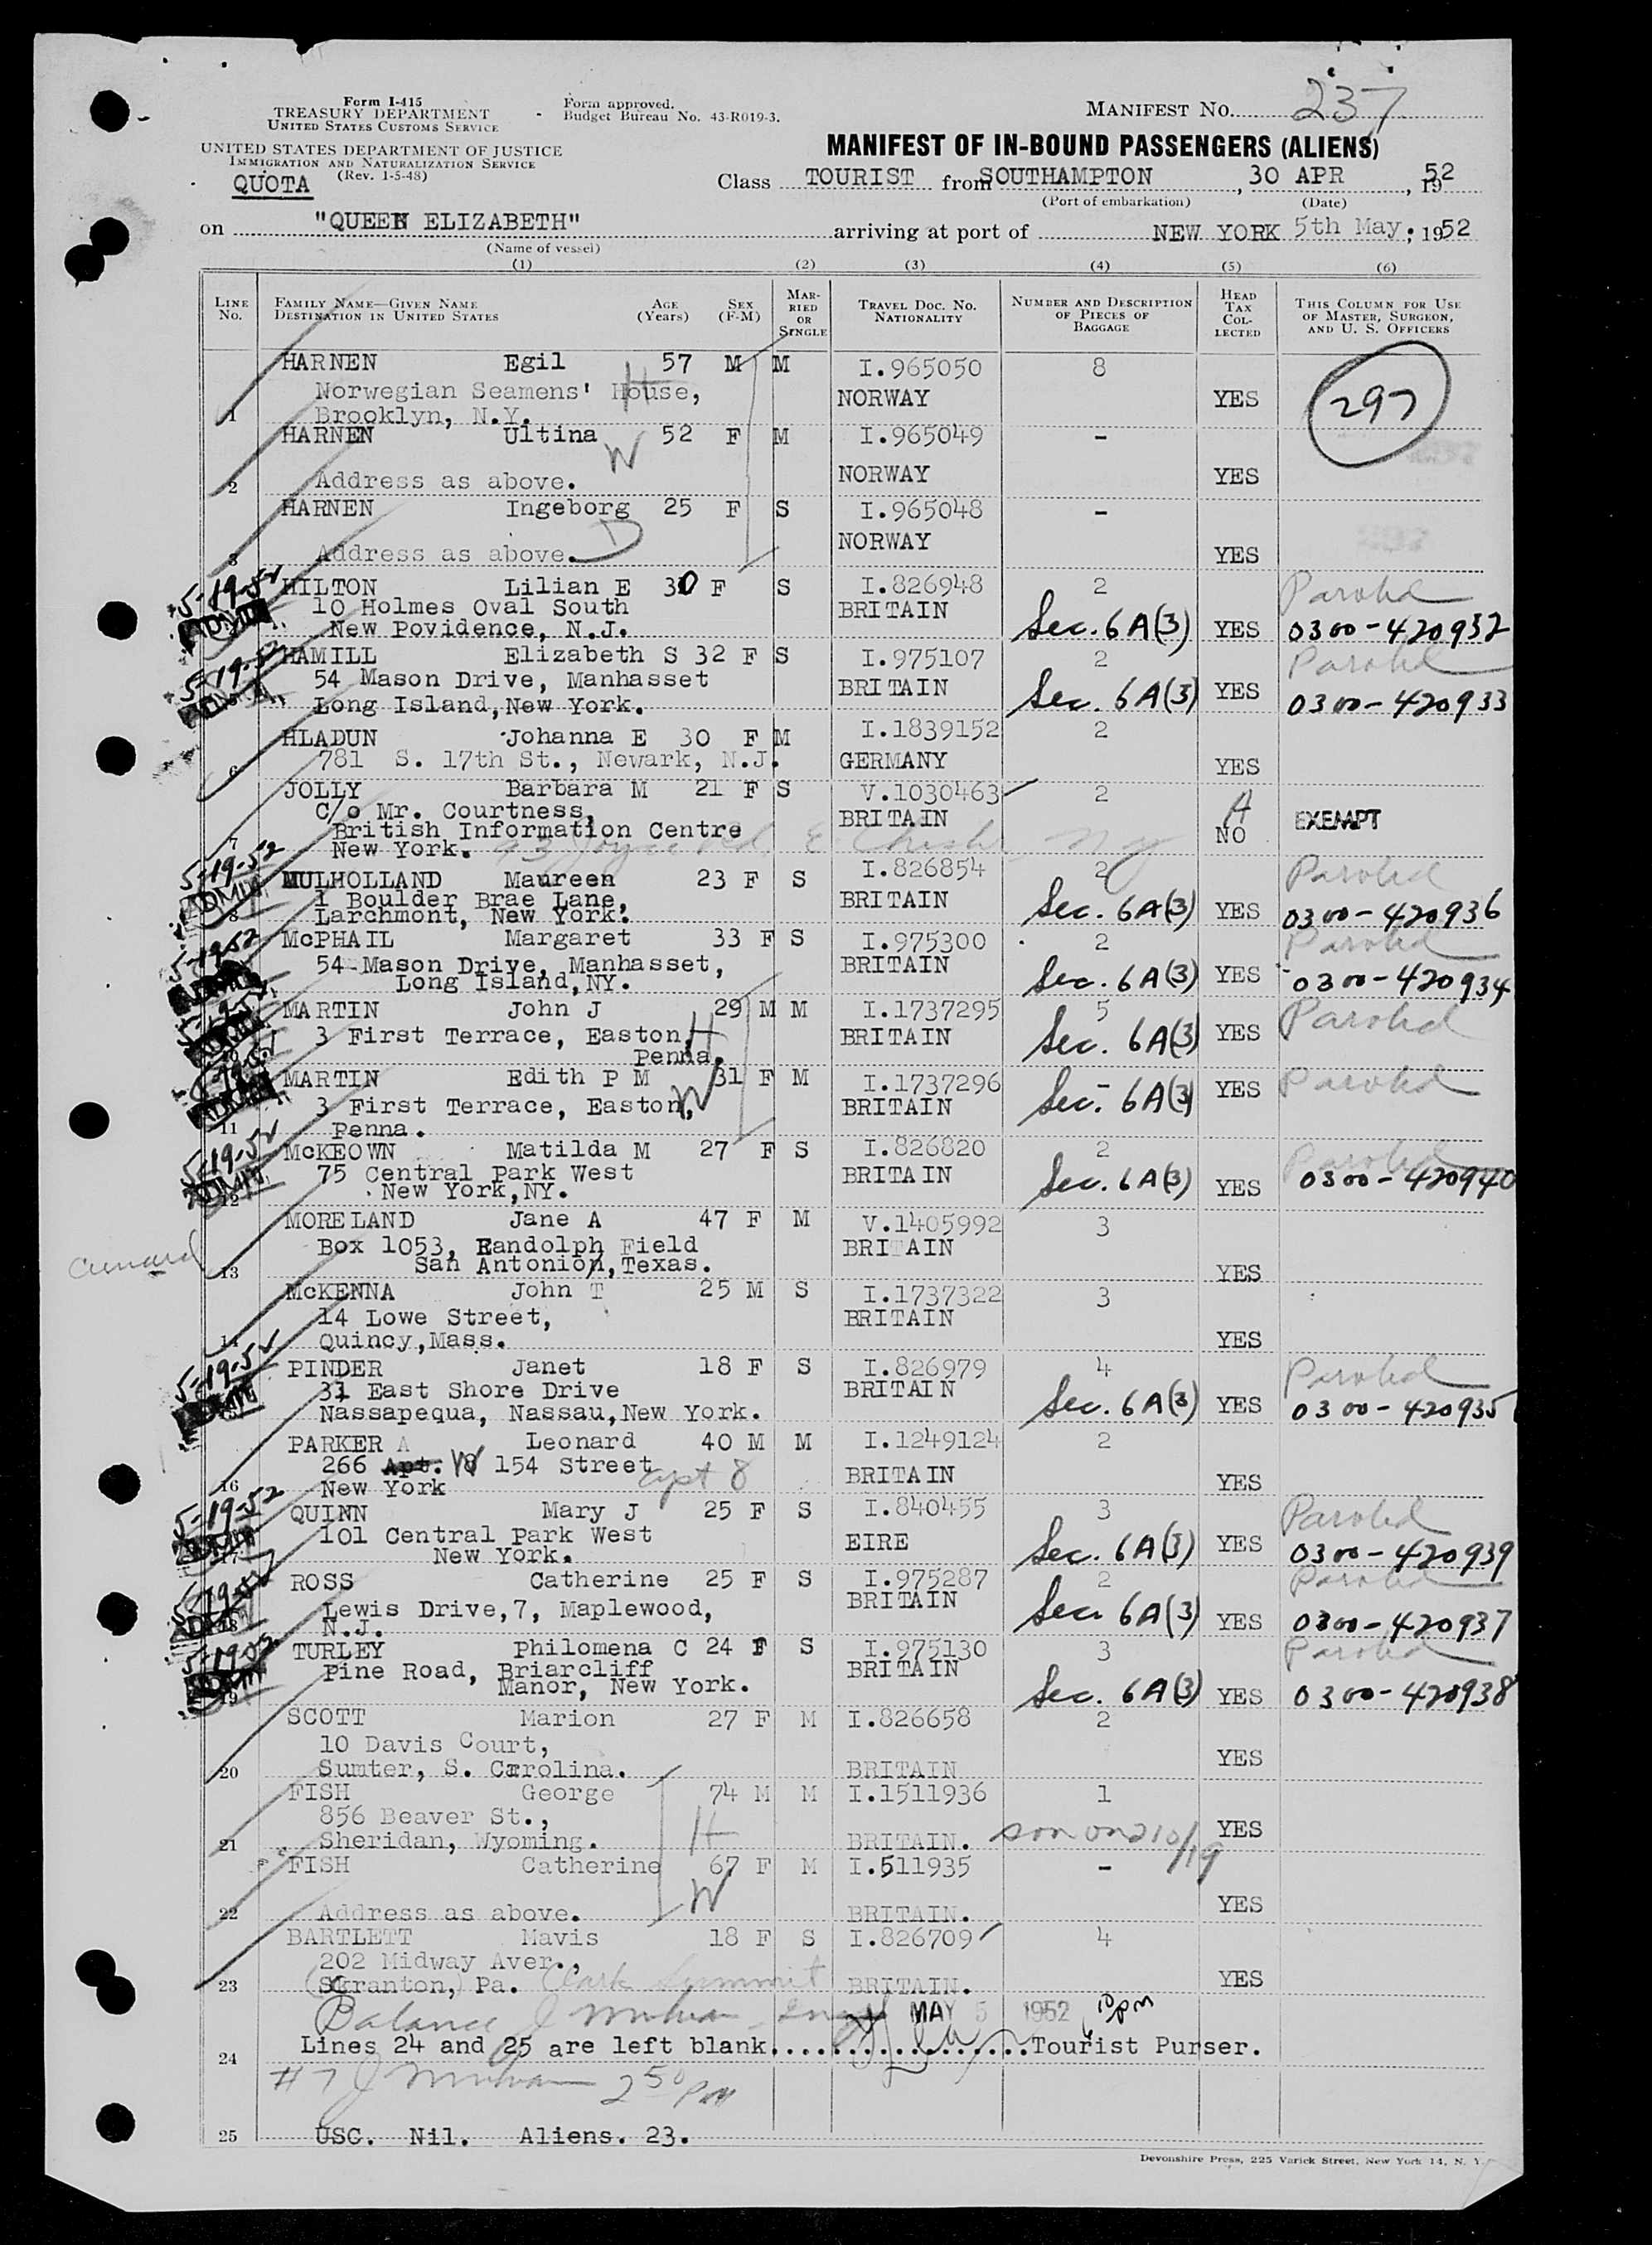 Form I-415
TREASURY DEPARTMENT
UNITED STATES CUSTOMS SERVICE
Form approved.
Budget Bureau No. 43-R019-3.
MANIFEST NO. 237
UNITED STATES DEPARTMENT OF JUSTICE
IMMIGRATION AND NATURALIZATION SERVICE
(Rev. 1-5-48)
MANIFEST OF IN-BOUND PASSENGERS (ALIENS)
QUOTA
Class TOURIST from SOUTHAMPTON, 30 APR, 1952
(Port of embarkation) (Date)
on "QUEEN ELIZABETH" arriving at port of NEW YORK 5th May, 1952
(Name of vessel)
(1) (2) (3) (4) (5) (6)
LINE No.
FAMILY NAME—GIVEN NAME
DESTINATION IN UNITED STATES
AGE (Years)
SEX (F-M)
MARRIED OR SINGLE
TRAVEL DOC. NO.
NATIONALITY
NUMBER AND DESCRIPTION OF PIECES OF BAGGAGE
HEAD TAX COLLECTED
THIS COLUMN FOR USE OF MASTER, SURGEON, AND U. S. OFFICERS
HARNEN Egil 57 M M I.965050 8
Norwegian Seamens' House, H NORWAY YES 297
1 Brooklyn, N.Y.
HARNEN Ultina 52 F M I.965049 -
W
2 Address as above. NORWAY YES
HARNEN Ingeborg 25 F S I.965048 -
D NORWAY
3 Address as above. YES
5-19-52 HILTON Lilian E 30 F S I.826948 2 Paroled
10 Holmes Oval South BRITAIN
New Povidence, N.J. Sec. 6A(3) YES 0300-420932
5-19-52 HAMILL Elizabeth S 32 F S I.975107 2 Paroled
54 Mason Drive, Manhasset BRITAIN Sec. 6A(3) YES
Long Island, New York. 0300-420933
HLADUN Johanna E 30 F M I.1839152 2
6 781 S. 17th St., Newark, N.J. GERMANY YES
JOLLY Barbara M 21 F S V.1030463 2
C/o Mr. Courtness, BRITAIN A EXEMPT
7 British Information Centre NO
New York. N Y
5-19-52 MULHOLLAND Maureen 23 F S I.826854 2 Paroled
1 Boulder Brae Lane, BRITAIN
8 Larchmont, New York. Sec. 6A(3) YES 0300-420936
5-19-52 McPHAIL Margaret 33 F S I.975300 2 Paroled
54 Mason Drive, Manhasset, BRITAIN
Long Island, NY. Sec. 6A(3) YES 0300-420934
MARTIN John J 29 M M I.1737295 5 Paroled
3 First Terrace, Easton, H BRITAIN Sec. 6A(3) YES
10 Penna.
MARTIN Edith P M 31 F M I.1737296 - YES Paroled
3 First Terrace, Easton, W BRITAIN Sec. 6A(3)
11 Penna.
5-19-52 McKEOWN Matilda M 27 F S I.826820 2 Paroled
75 Central Park West BRITAIN 0300-420940
12 New York, NY. Sec. 6A(3) YES
MORELAND Jane A 47 F M V.1405992 3
Cunard Box 1053, Randolph Field BRITAIN
13 San Antonion, Texas. YES
McKENNA John T 25 M S I.1737322 3
14 Lowe Street, BRITAIN
14 Quincy, Mass. YES
5-19-52 PINDER Janet 18 F S I.826979 4 Paroled
31 East Shore Drive BRITAIN
15 Nassapequa, Nassau, New York. Sec. 6A(3) YES 0300-420935
PARKER A Leonard 40 M M I.1249124 2
266 Apt. W 154 Street apt 8 BRITAIN
16 New York YES
5-19-52 QUINN Mary J 25 F S I.840455 3 Paroled
101 Central Park West EIRE
17 New York. Sec. 6A(3) YES 0300-420939
5-19-52 ROSS Catherine 25 F S I.975287 2 Paroled
Lewis Drive, 7, Maplewood, BRITAIN
18 N.J. Sec. 6A(3) YES 0300-420937
5-19-52 TURLEY Philomena C 24 F S I.975130 3 Paroled
Pine Road, Briarcliff BRITAIN
19 Manor, New York. Sec. 6A(3) YES 0300-420938
SCOTT Marion 27 F M I.826658 2
10 Davis Court,
20 Sumter, S. Carolina. BRITAIN YES
FISH George 74 M M I.1511936 1
856 Beaver St., H
21 Sheridan, Wyoming. BRITAIN. son on 210/19 YES
FISH Catherine 67 F M I.511935 -
W
22 Address as above. BRITAIN. YES
BARTLETT Mavis 18 F S I.826709 4
202 Midway Aver.,
23 (Scranton,) Pa. Clark Summit BRITAIN. YES
Balance MAY 5 1952 10 pm
24 Lines 24 and 25 are left blank. Tourist Purser.
#7 2 50 PM
25 USC. Nil. Aliens. 23.
Devonshire Press, 225 Varick Street, New York 14, N. Y.